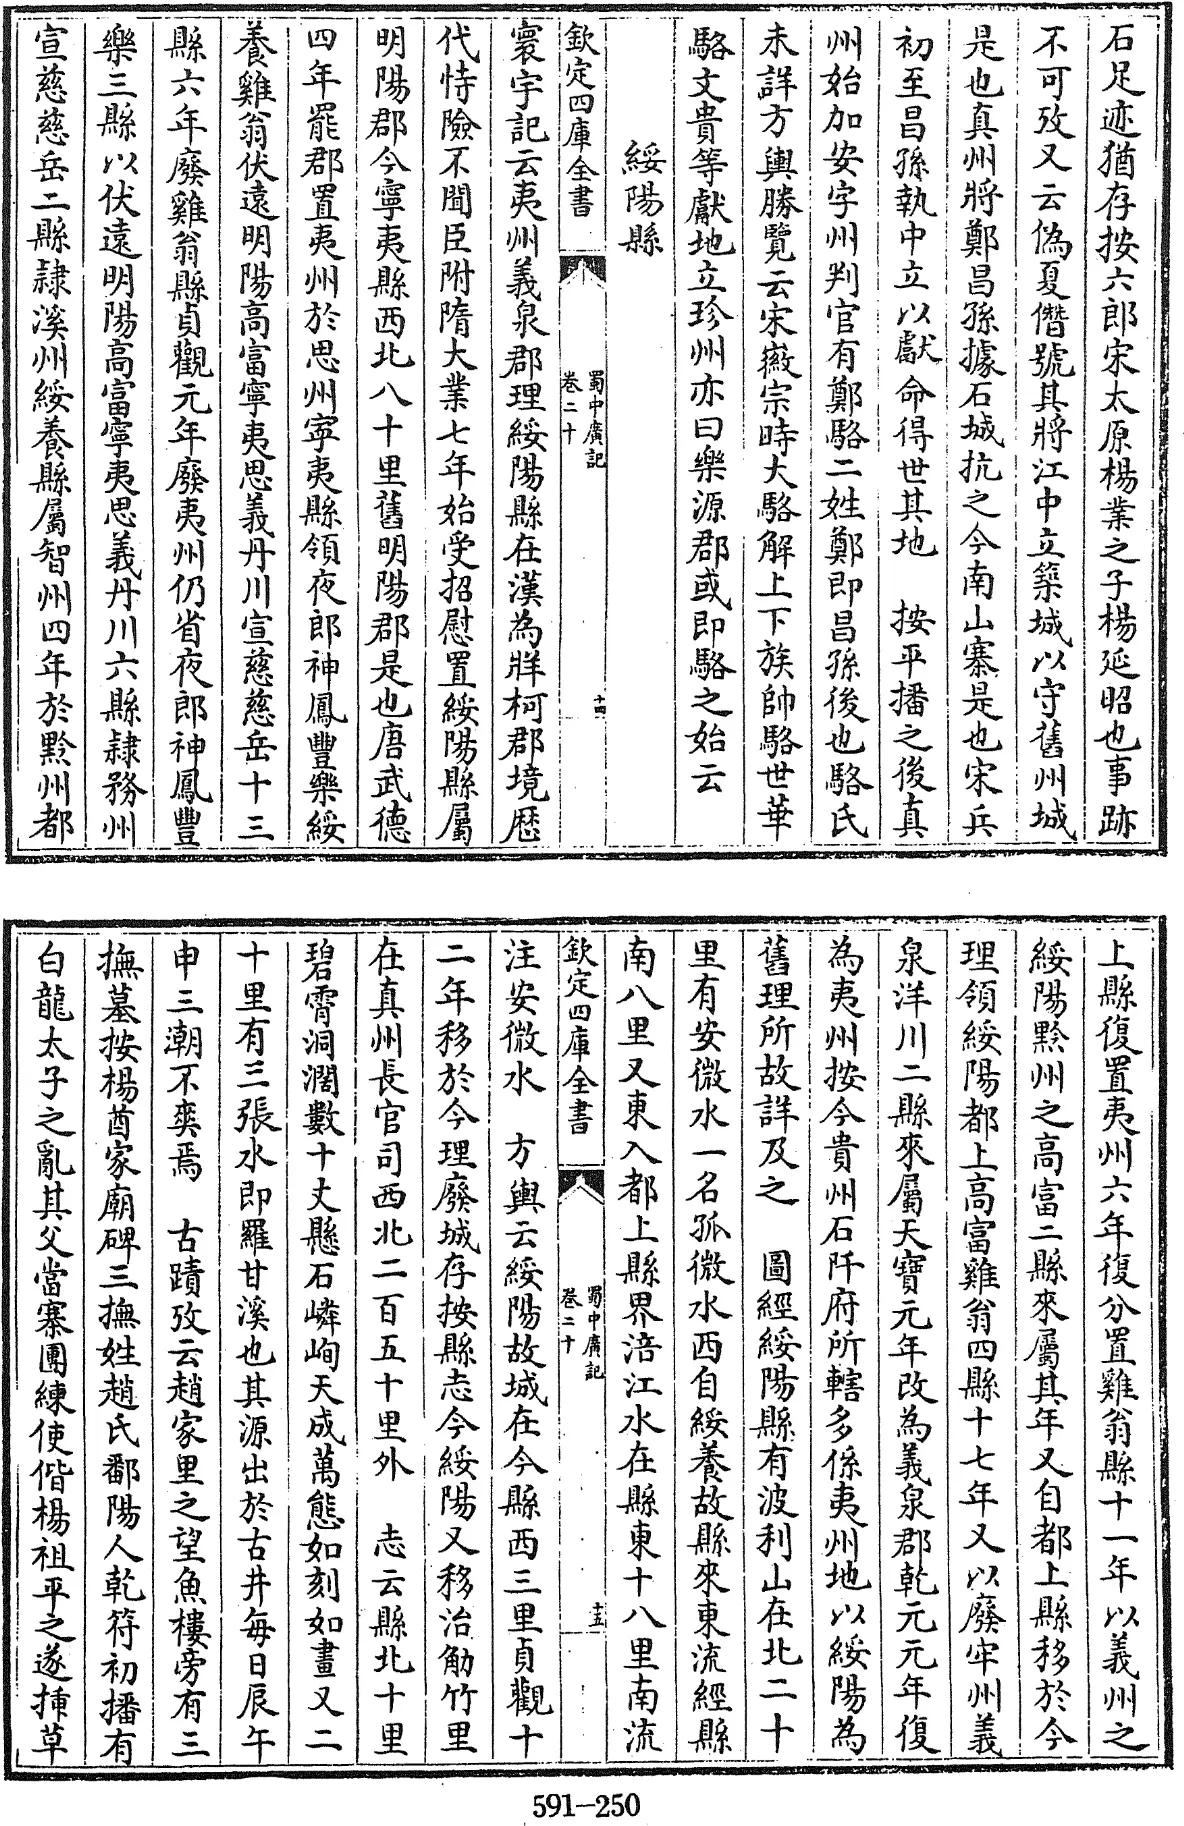 石足迹猶存按六郎宋太原楊業之子楊延昭也事跡
不可攷又云偽夏僭號其將江中立築城以守舊州城
是也真州將鄭昌孫據石城抗之今南山寨是也宋兵
初至昌孫執中立以獻 命得世其地 按平播之後真
州始加安字州判官有鄭駱二姓鄭即昌孫後也駱氏
未詳方輿勝覽云宋徽宗時大駱解上下族帥駱世華
駱文貴等獻地立珍州亦曰樂源郡或即駱之始云
綏陽縣
欽定四庫全書
蜀中廣記
卷二十
十四
寰宇記云夷州義泉郡理綏陽縣在漢為牂柯郡境歷
代恃險不聞臣附隋大業七年始受招慰置綏陽縣屬
明陽郡今寧夷縣西北八十里舊明陽郡是也唐武德
四年罷郡置夷州於思州寧夷縣領夜郎神鳳豐樂綏
養雞翁伏遠明陽高富寧夷思義丹川宣慈慈岳十三
縣六年廢雞翁縣貞觀元年廢夷州仍省夜郎神鳳豐
樂三縣以伏遠明陽高富寧夷思義丹川六縣隷務州
宣慈慈岳二縣隷溪州綏養縣屬智州四年於黔州都
上縣復置夷州六年復分置雞翁縣十一年以義州之
綏陽黔州之高富二縣來屬其年又自都上縣移於今
理領綏陽都上高富雞翁四縣十七年又以廢牢州義
泉洋川二縣來屬天寶元年改為義泉郡乾元元年復
為夷州按今貴州石阡府所轄多係夷州地以綏陽為
舊理所故詳及之 圖經綏陽縣有波利山在北二十
里有安微水一名孤微水西自綏養故縣來東流經縣
南八里又東入都上縣界涪江水在縣東十八里南流
欽定四庫全書
蜀中廣記
卷二十
十五
注安微水 方輿云綏陽故城在今縣西三里貞觀十
二年移於今理廢城存按縣志今綏陽又移治觔竹里
在真州長官司西北二百五十里外 志云縣北十里
碧霄洞濶數十丈懸石嶙峋天成萬態如刻如畫又二
十里有三張水即羅甘溪也其源出於古井每日辰午
申三潮不爽焉 古蹟攷云趙家里之望魚樓旁有三
撫墓按楊酋家廟碑三撫姓趙氏鄱陽人乾符初播有
白龍太子之亂其父當寨團練使偕楊祖平之遂揷草
591—250